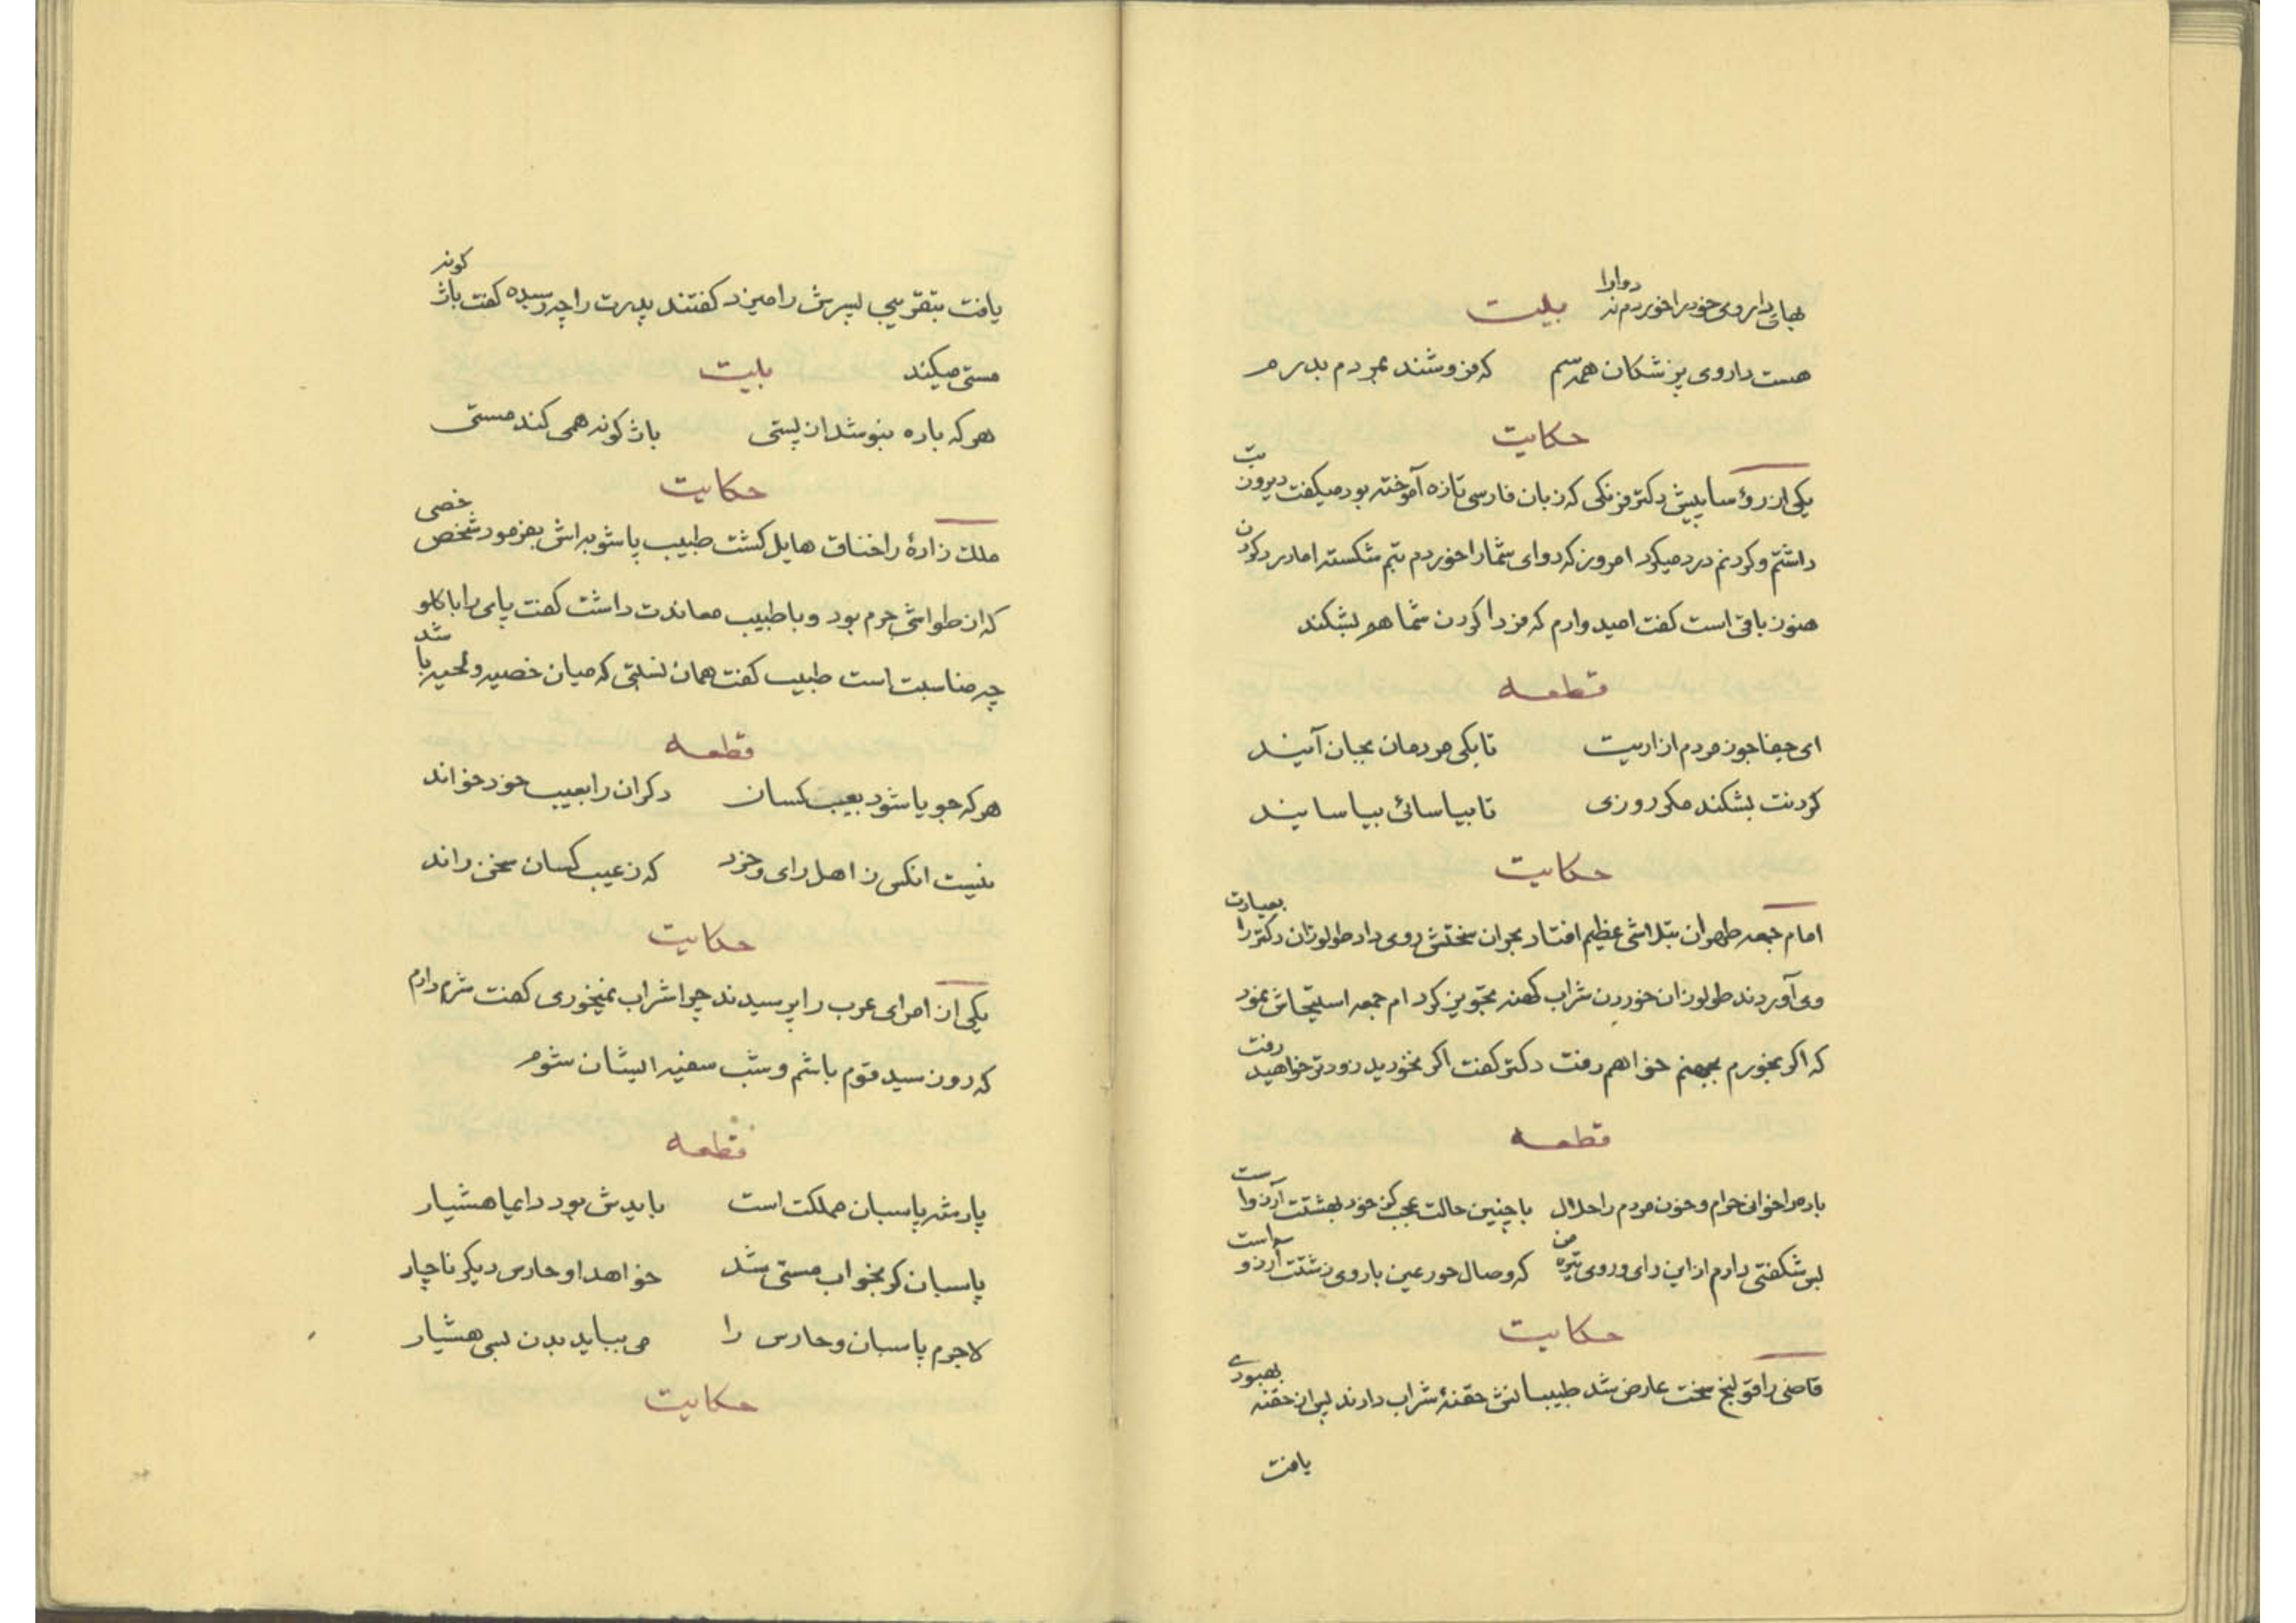 بهای داروی خود را خوردم نه دوا را بیت
هست داروی پزشکان همه سم که فروشند بمردم بدرم
حکایت
یکی از رؤسا پیش دکتر فرنگی که زبان فارسی تازه آموخته بود میگفت دیروز تب
داشتم و گردنم درد میکرد امروز که دوای شما را خوردم تبم شکسته اما درد گردن
هنوز باقی است گفت امیدوارم که فردا گردن شما هم بشکند
قطعه
ای جفا جو ز مردم ازاریت تا بکی مردمان بجان آیند
گردنت بشکند مگر روزی تا بیاسائی بیاسایند
حکایت
امام جمعه طهران بتلاشی عظیم افتاد بحران سختش روی داد طولوزان دکتر را بعیادت
وی آوردند طولوزان خوردن شراب کهنه تجویز کرد امام جمعه استیحاش نمود
که اگر بخورم بجهنم خواهم رفت دکتر گفت اگر نخورید زودتر خواهید رفت
قطعه
باده را خوانی حرام و خون مردم را حلال با چنین حالت عجب کز خود بهشتت آرزو است
بس شگفتی دارم از این رای و روی تیره من که وصال حور عین با روی زشتت آرزو است
حکایت
قاضی را قولنج سخت عارض شد طبیبانش حقنهٔ شراب دادند پس از حقنه بهبودی
یافت
یافت بتقریبی پسرش را میزد گفتند پدرت را چه رسیده گفت باژ گونه
مستی میکند بیت
هر که باده بنوشد از پستی باژ گونه همی کند مستی
حکایت
ملک زادهٔ را خناق هایل گشت طبیب پاشویه اش بفرمود شخص خصی
که از طواشی حرم بود و با طبیب معاندت داشت گفت پای را با گلو
چه مناسبت است طبیب گفت همان نسبتی که میان خصیه و لحیه با شد
قطعه
هر که جویا شود بعیب کسان دگران را بعیب خود خواند
نیست انکس ز اهل رای و خرد که ز عیب کسان سخن راند
حکایت
یکی از امرای عرب را پرسیدند چرا شراب نمیخوری گفت شرم دارم
که روز سید قوم باشم و شب سفیه ایشان شوم
قطعه
پادشه پاسبان مملکت است بایدش بود دایما هشیار
پاسبان کو بخواب مستی شد خواهد او حارس دیگر ناچار
لاجرم پاسبان و حارس را می بباید بدن بسی هشیار
حکایت